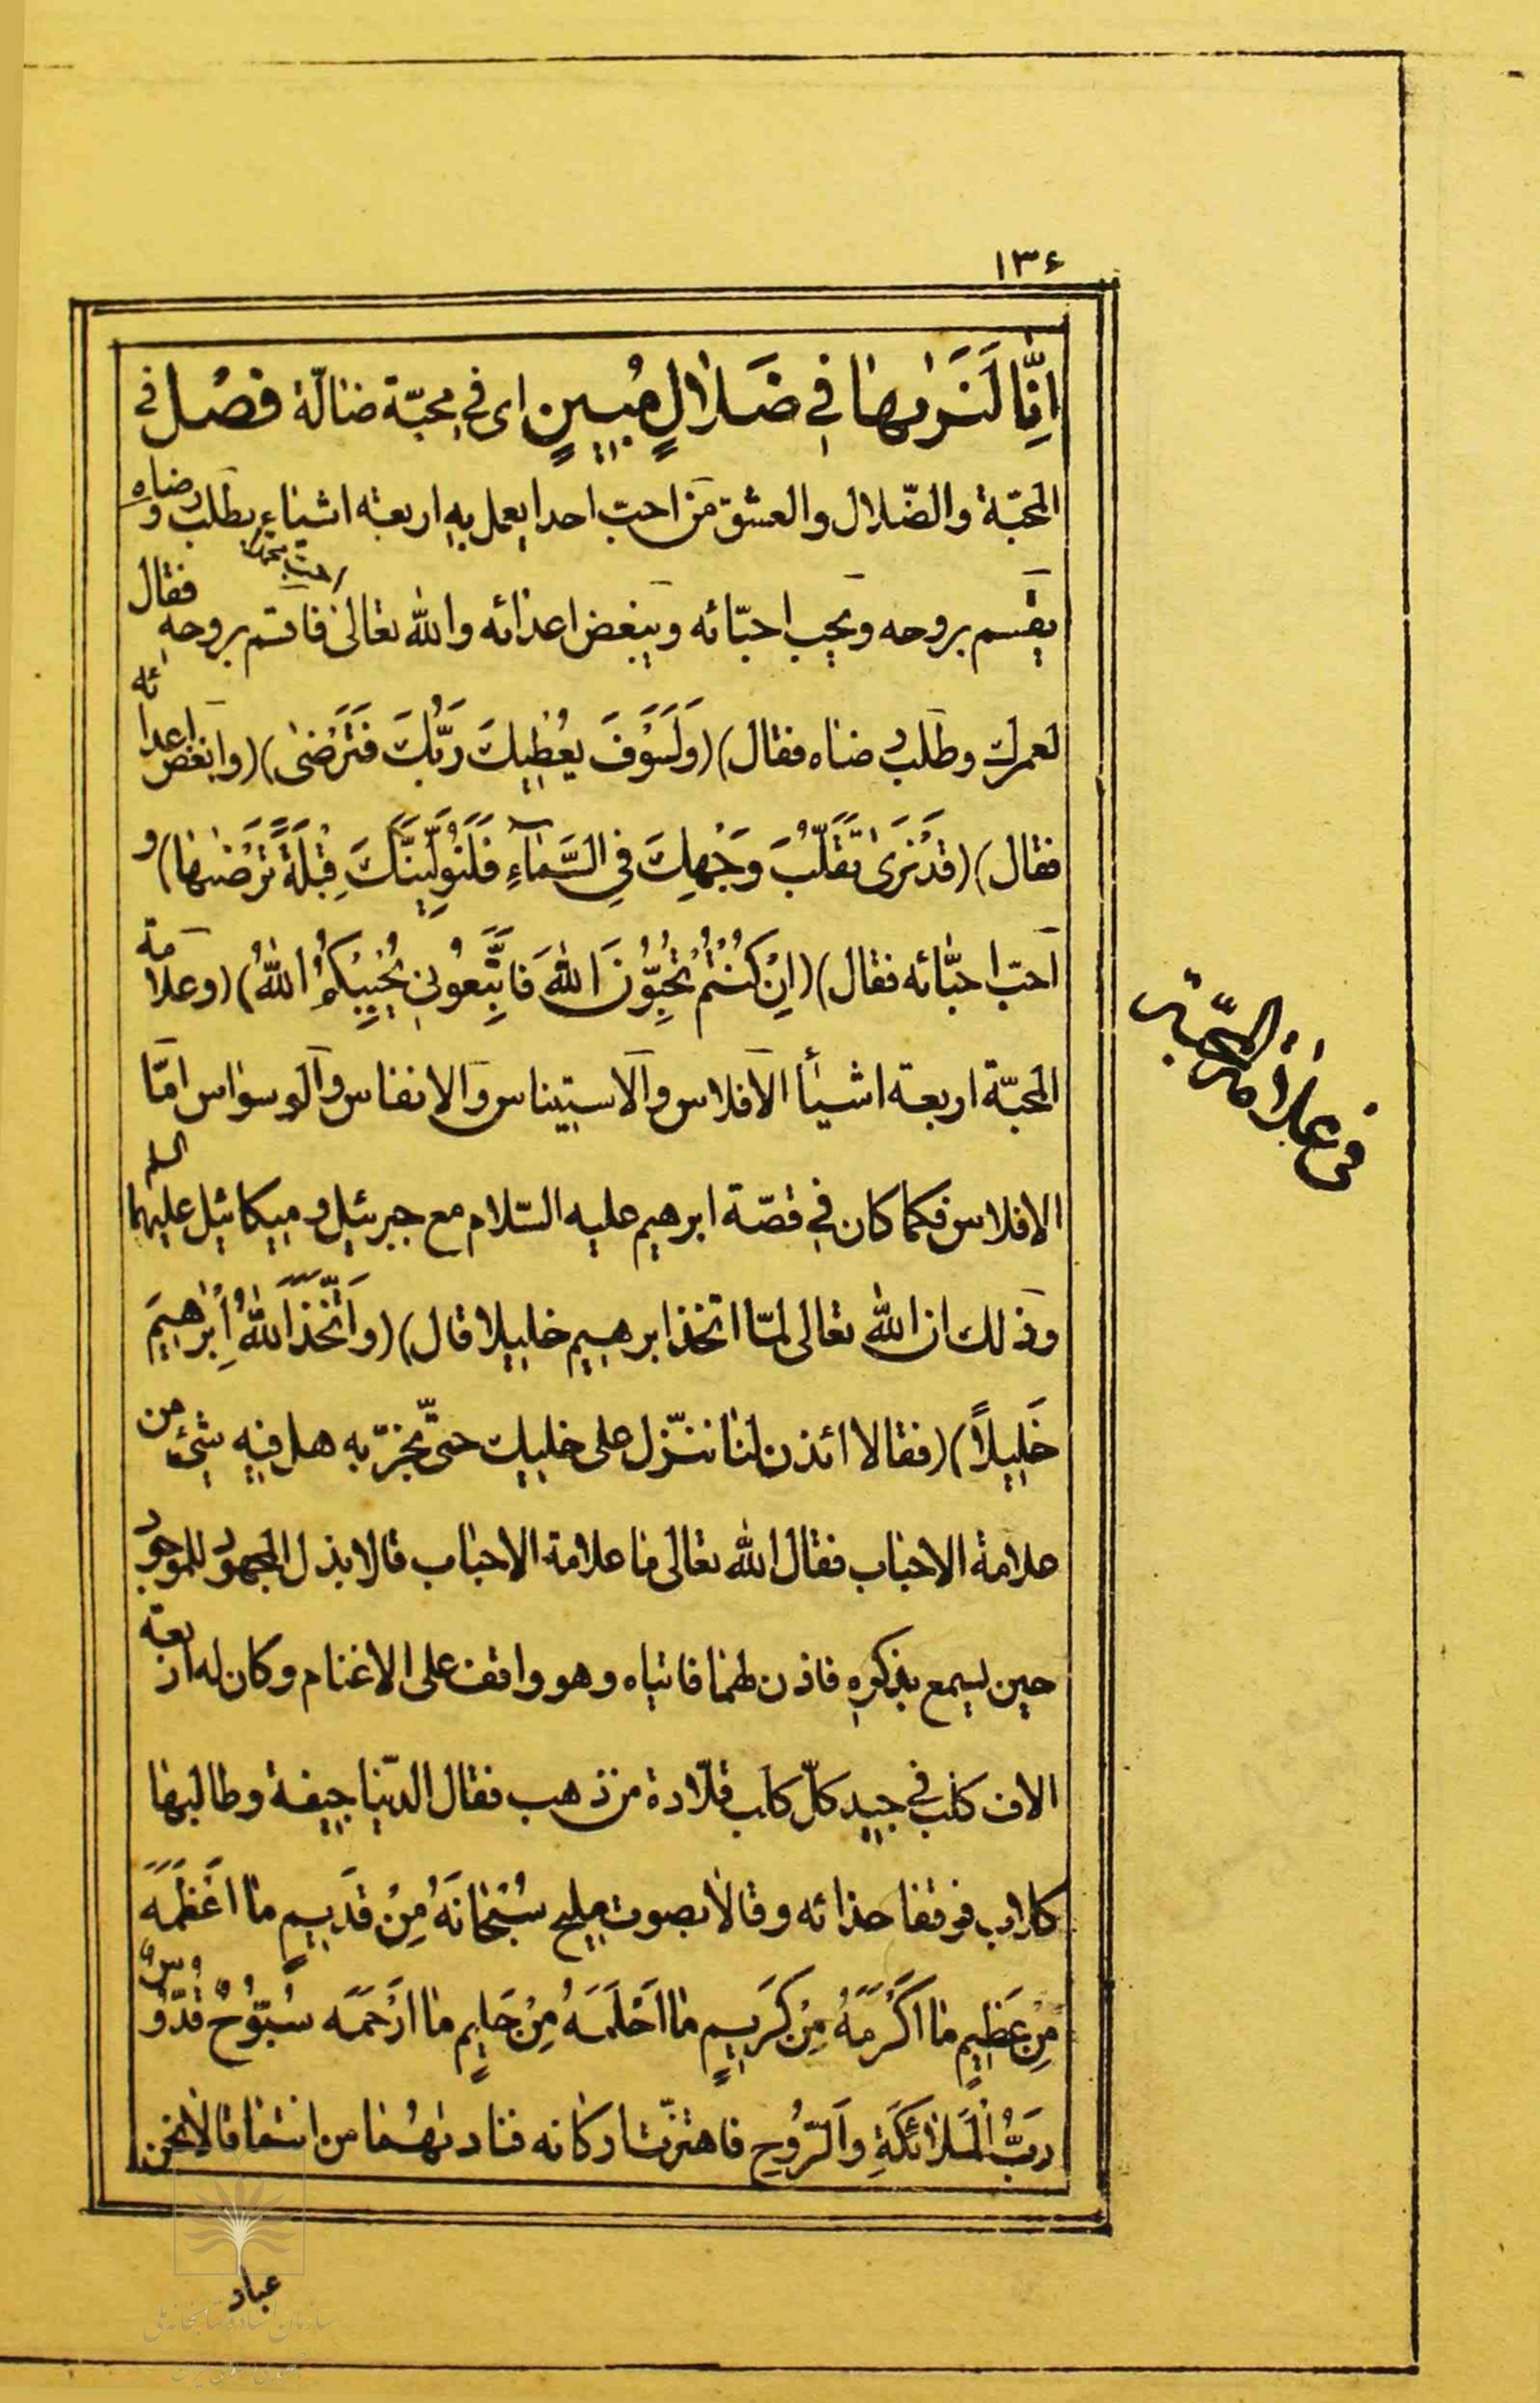 ١٣۶
اِنَّا لَنَرٰیهٰا فِی ضَلاٰلٍ مُبِینٍ ای فی محبّة ضالّة فصل فی
المحبّة والضّلال والعشق من احبّ احدا یعمل به اربعة اشیاء یطلب رضاه و
یقسم بروحه ویحب احبّائه ویبغض اعدائه والله تعالی احبّ محمّدا فاقسم بروحه فقال
لعمرك وطلب رضاه فقال) (وَلَسَوْفَ یُعْطِیكَ رَبُّكَ فَتَرْضىٰ) (وابغض اعدائه
فقال) (قَدْ نَرَىٰ تَقَلُّبَ وَجْهِكَ فِی السَّمٰآءِ فَلَنُوَلِّیَنَّكَ قِبْلَةً تَرْضٰیهٰا) و
احبّ احبّائه فقال) (اِنْ كُنْتُمْ تُحِبُّونَ اللهَ فَاتَّبِعُونِی یُحْبِبْكُمُ اللهُ) (وعلامة
المحبّة اربعة اشیأا الافلاس والاستیناس والانفاس والوسواس امّا
الافلاس فكما كان فی قصّة ابرهیم علیه السّلام مع جبرئیل و میكائیل علیهما السلم
وذلك ان الله تعالی لمّا اتخذ ابرهیم خلیلا قال) (وَاتَّخَذَ اللهُ اِبْرٰهِیمَ
خَلِیلاً) (فقالا ائذن لنا ننزّل علی خلیلك حتّی نجرّبه هل فیه شئ من
علامة الاحباب فقال الله تعالی ما علامة الاحباب قالا بذل المجهود للموجود
حین یسمع بذكره فاذن لهما فاتیاه وهو واقف علی الاغنام وكان له اربعة
الاف كلب فی جید كلّ كلب قلّادة من ذهب فقال الدّنیا جیفة وطالبها
كلاب فوقفا حذائه وقالا بصوت ملیح سُبْحٰانَهُ مِنْ قَدِیمٍ مٰا اَعْظَمَهُ
مِنْ عَظِیمٍ مٰا اَكْرَمَهُ مِنْ كَرِیمٍ مٰا اَحْلَمَهُ مِنْ حَلِیمٍ مٰا اَرْحَمَه سُبُّوحٌ قُدُّوسٌ
رَبُّ الْمَلاٰئِكَةِ وَالرُّوحِ فاهتزّت اركانه فنادیهُما من انتما قالا نحن
فی علامة المحبّة
عباد
سازمان اسناد و کتابخانه ملی